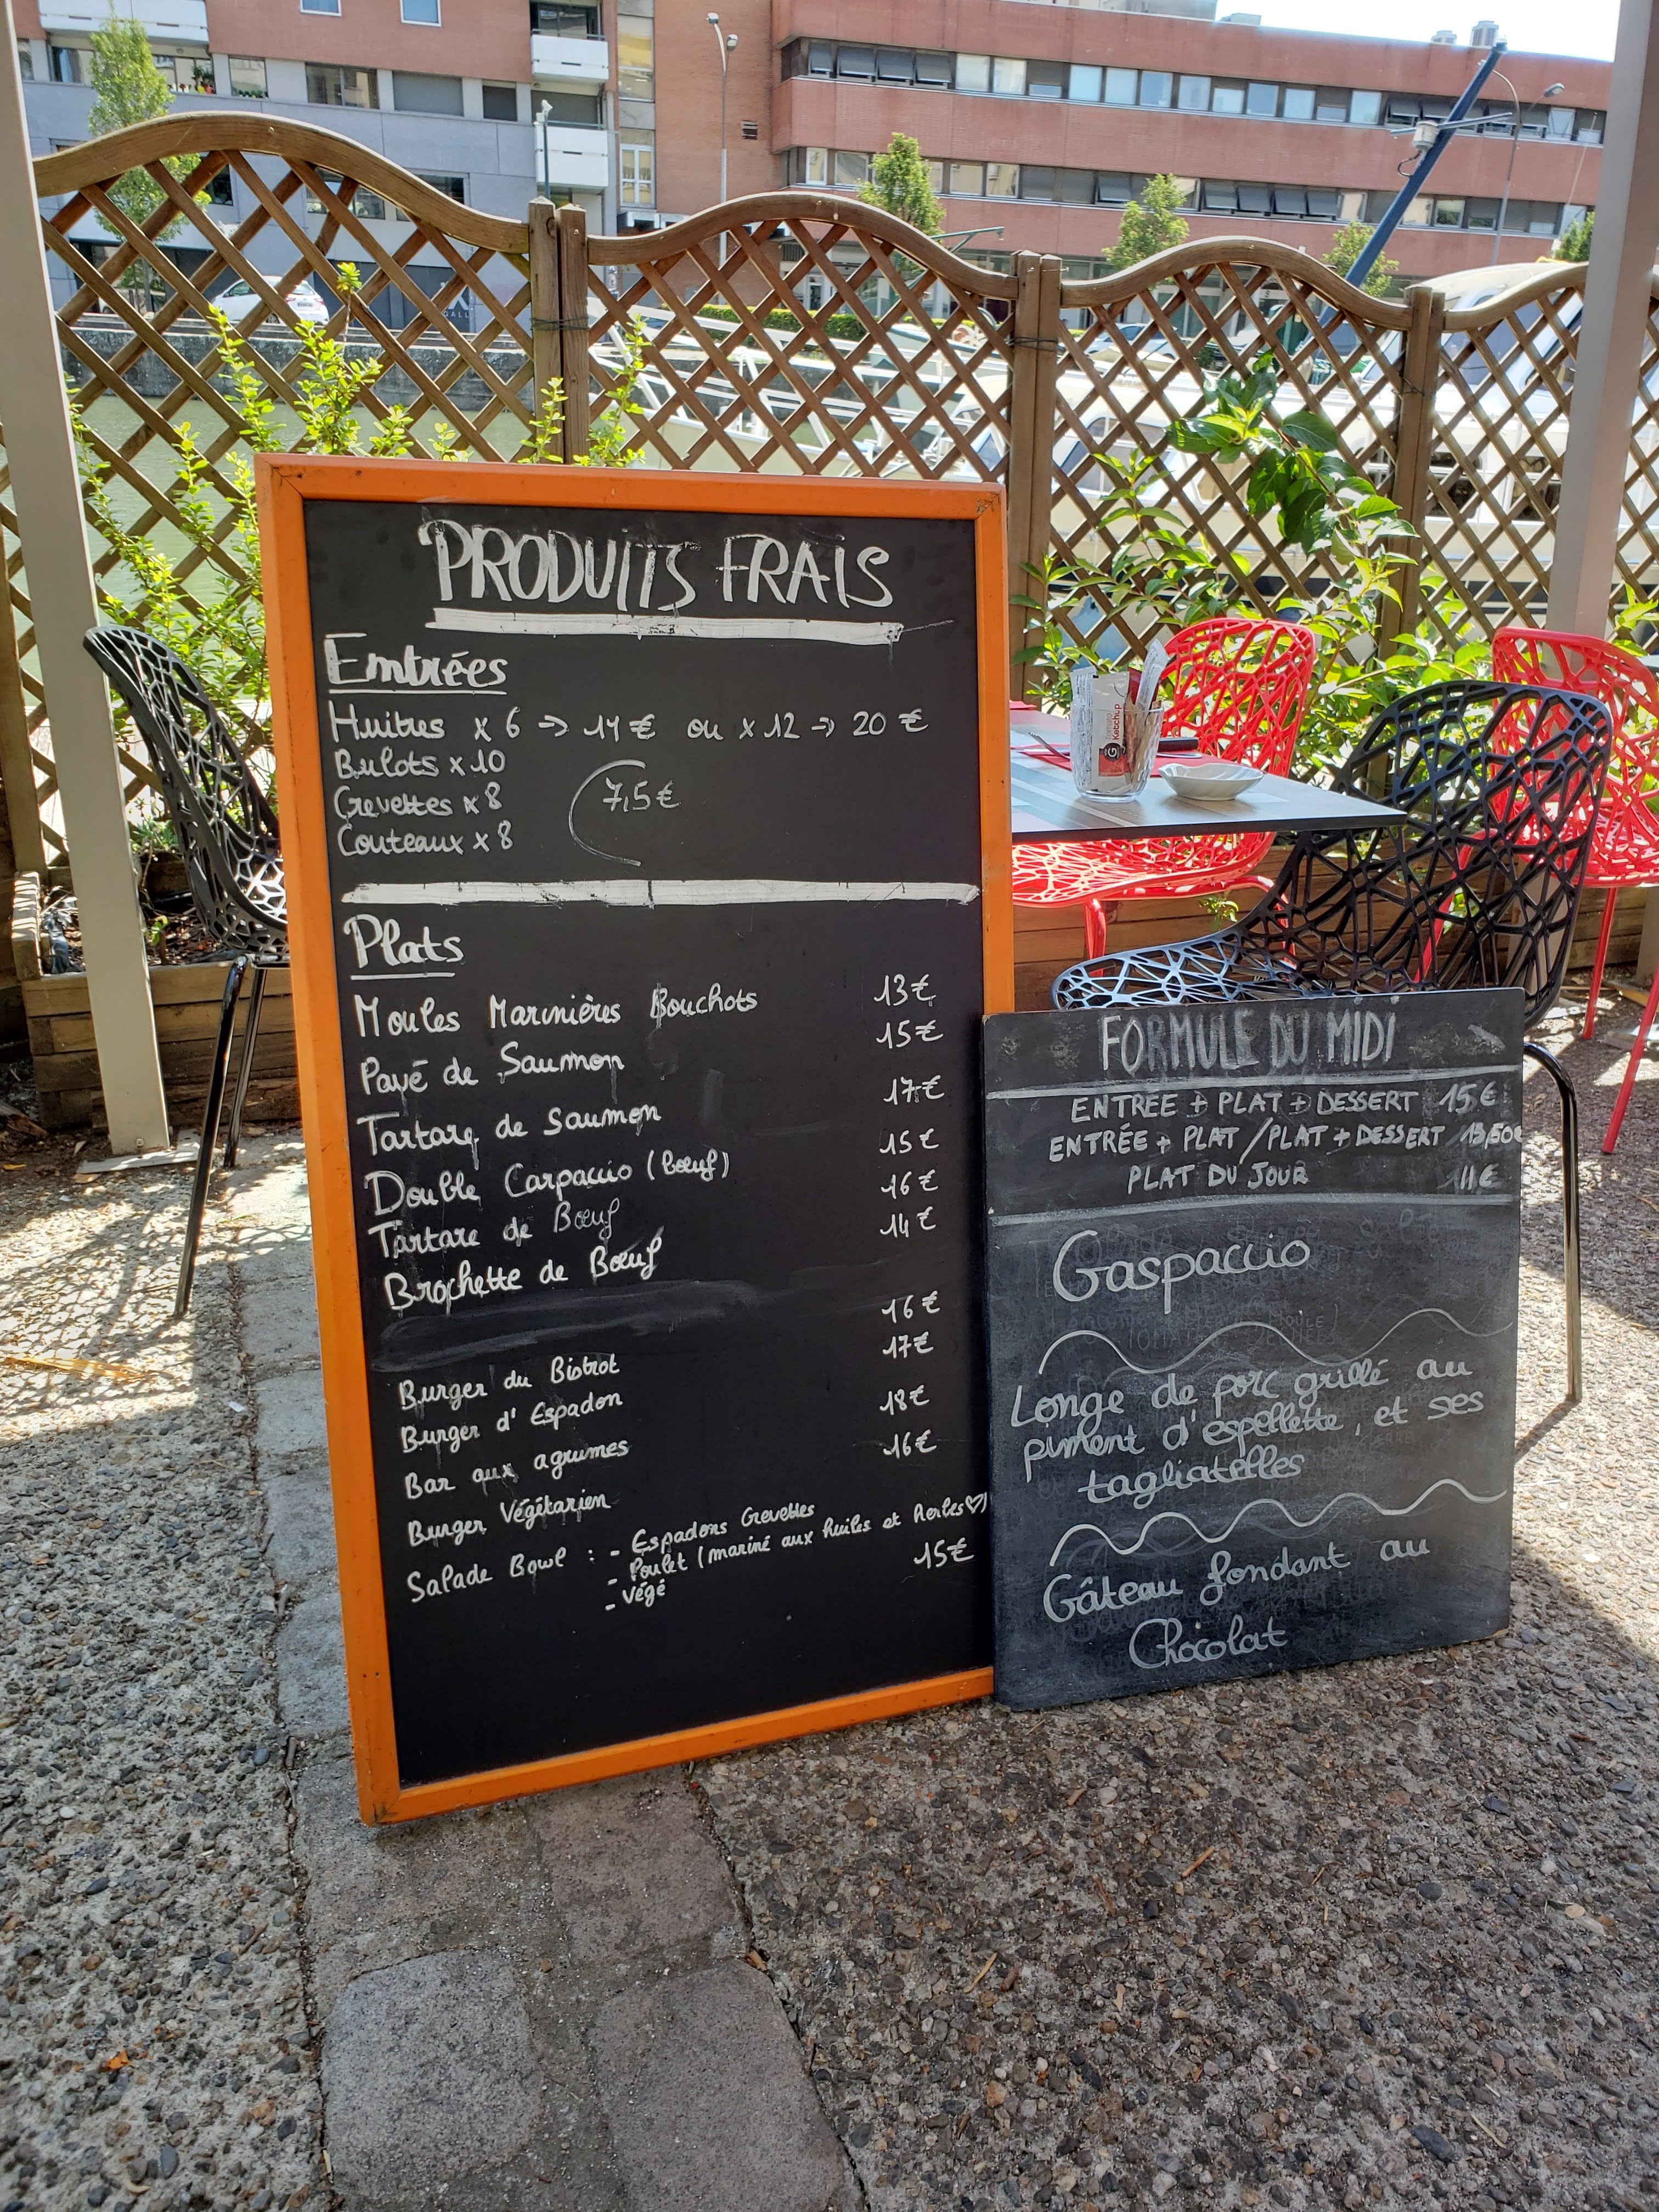 PRODUITS FRAIS
Entrées
Huitres x 6 → 11€ ou x 12 → 20 €
Bulots x 10
Crevettes x 8
7,5€
Couteaux x 8
Plats
Moules Marinières Bouchots 13€
Pavé de Saumon 15€
Tartare de Saumon 17€
Double Carpaccio (bœuf) 15€
Tartare de Bœuf 16€
Brochette de Bœuf 14€
Burger du Bistrot 16€
Burger d'Espadon 17€
Bar aux agrumes 18€
Burger Végétarien 16€
Salade Bowl : - Espadons Crevettes
- Poulet (mariné aux huiles et Herbes♡)
- Végé 15€
FORMULE DU MIDI
ENTREE + PLAT + DESSERT 15€
ENTRÉE + PLAT / PLAT + DESSERT 13,50€
PLAT DU JOUR 11€
Gaspaccio
Longe de porc grillé au
piment d'espellette, et ses
tagliatelles
Gâteau fondant au
Chocolat
Ketchup